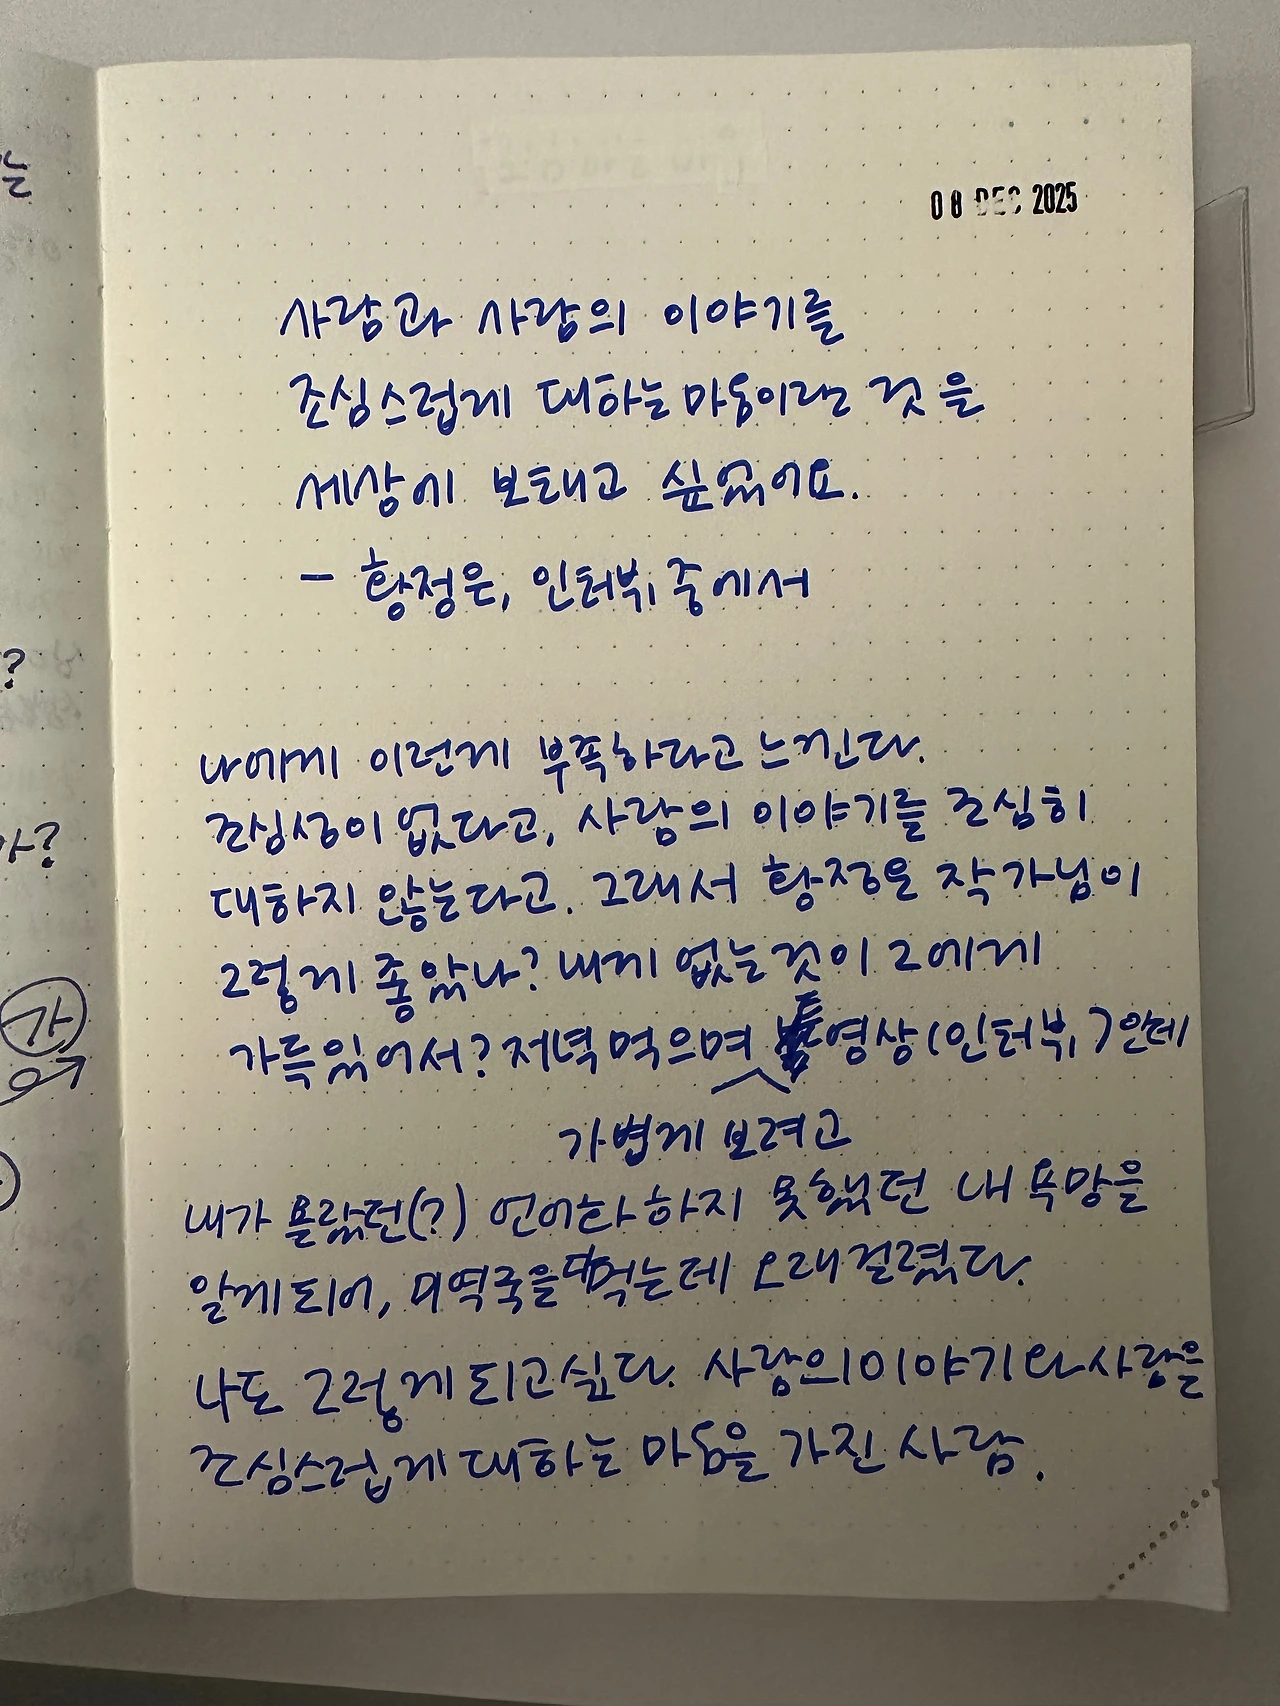 08 DEC 2025
사람과 사람의 이야기를
조심스럽게 대하는 마음이라는 것을
세상에 보태고 싶었어요.
- 황정은, 인터뷰 중에서
나에게 이런게 부족하다고 느낀다.
조심성이 없다고, 사람의 이야기를 조심히
대하지 않는다고. 그래서 황정은 작가님이
그렇게 좋았나? 내게 없는 것이 그에게
가득있어서? 저녁 먹으며 영상(인터뷰)인데
가볍게 보려고
내가 몰랐던(?) 언어화 하지 못했던 내 욕망을
알게되어, 미역국을 떠먹는데 오래걸렸다.
나도 그렇게 되고싶다. 사람의 이야기와 사람을
조심스럽게 대하는 마음을 가진 사람.
는
?
가?
가